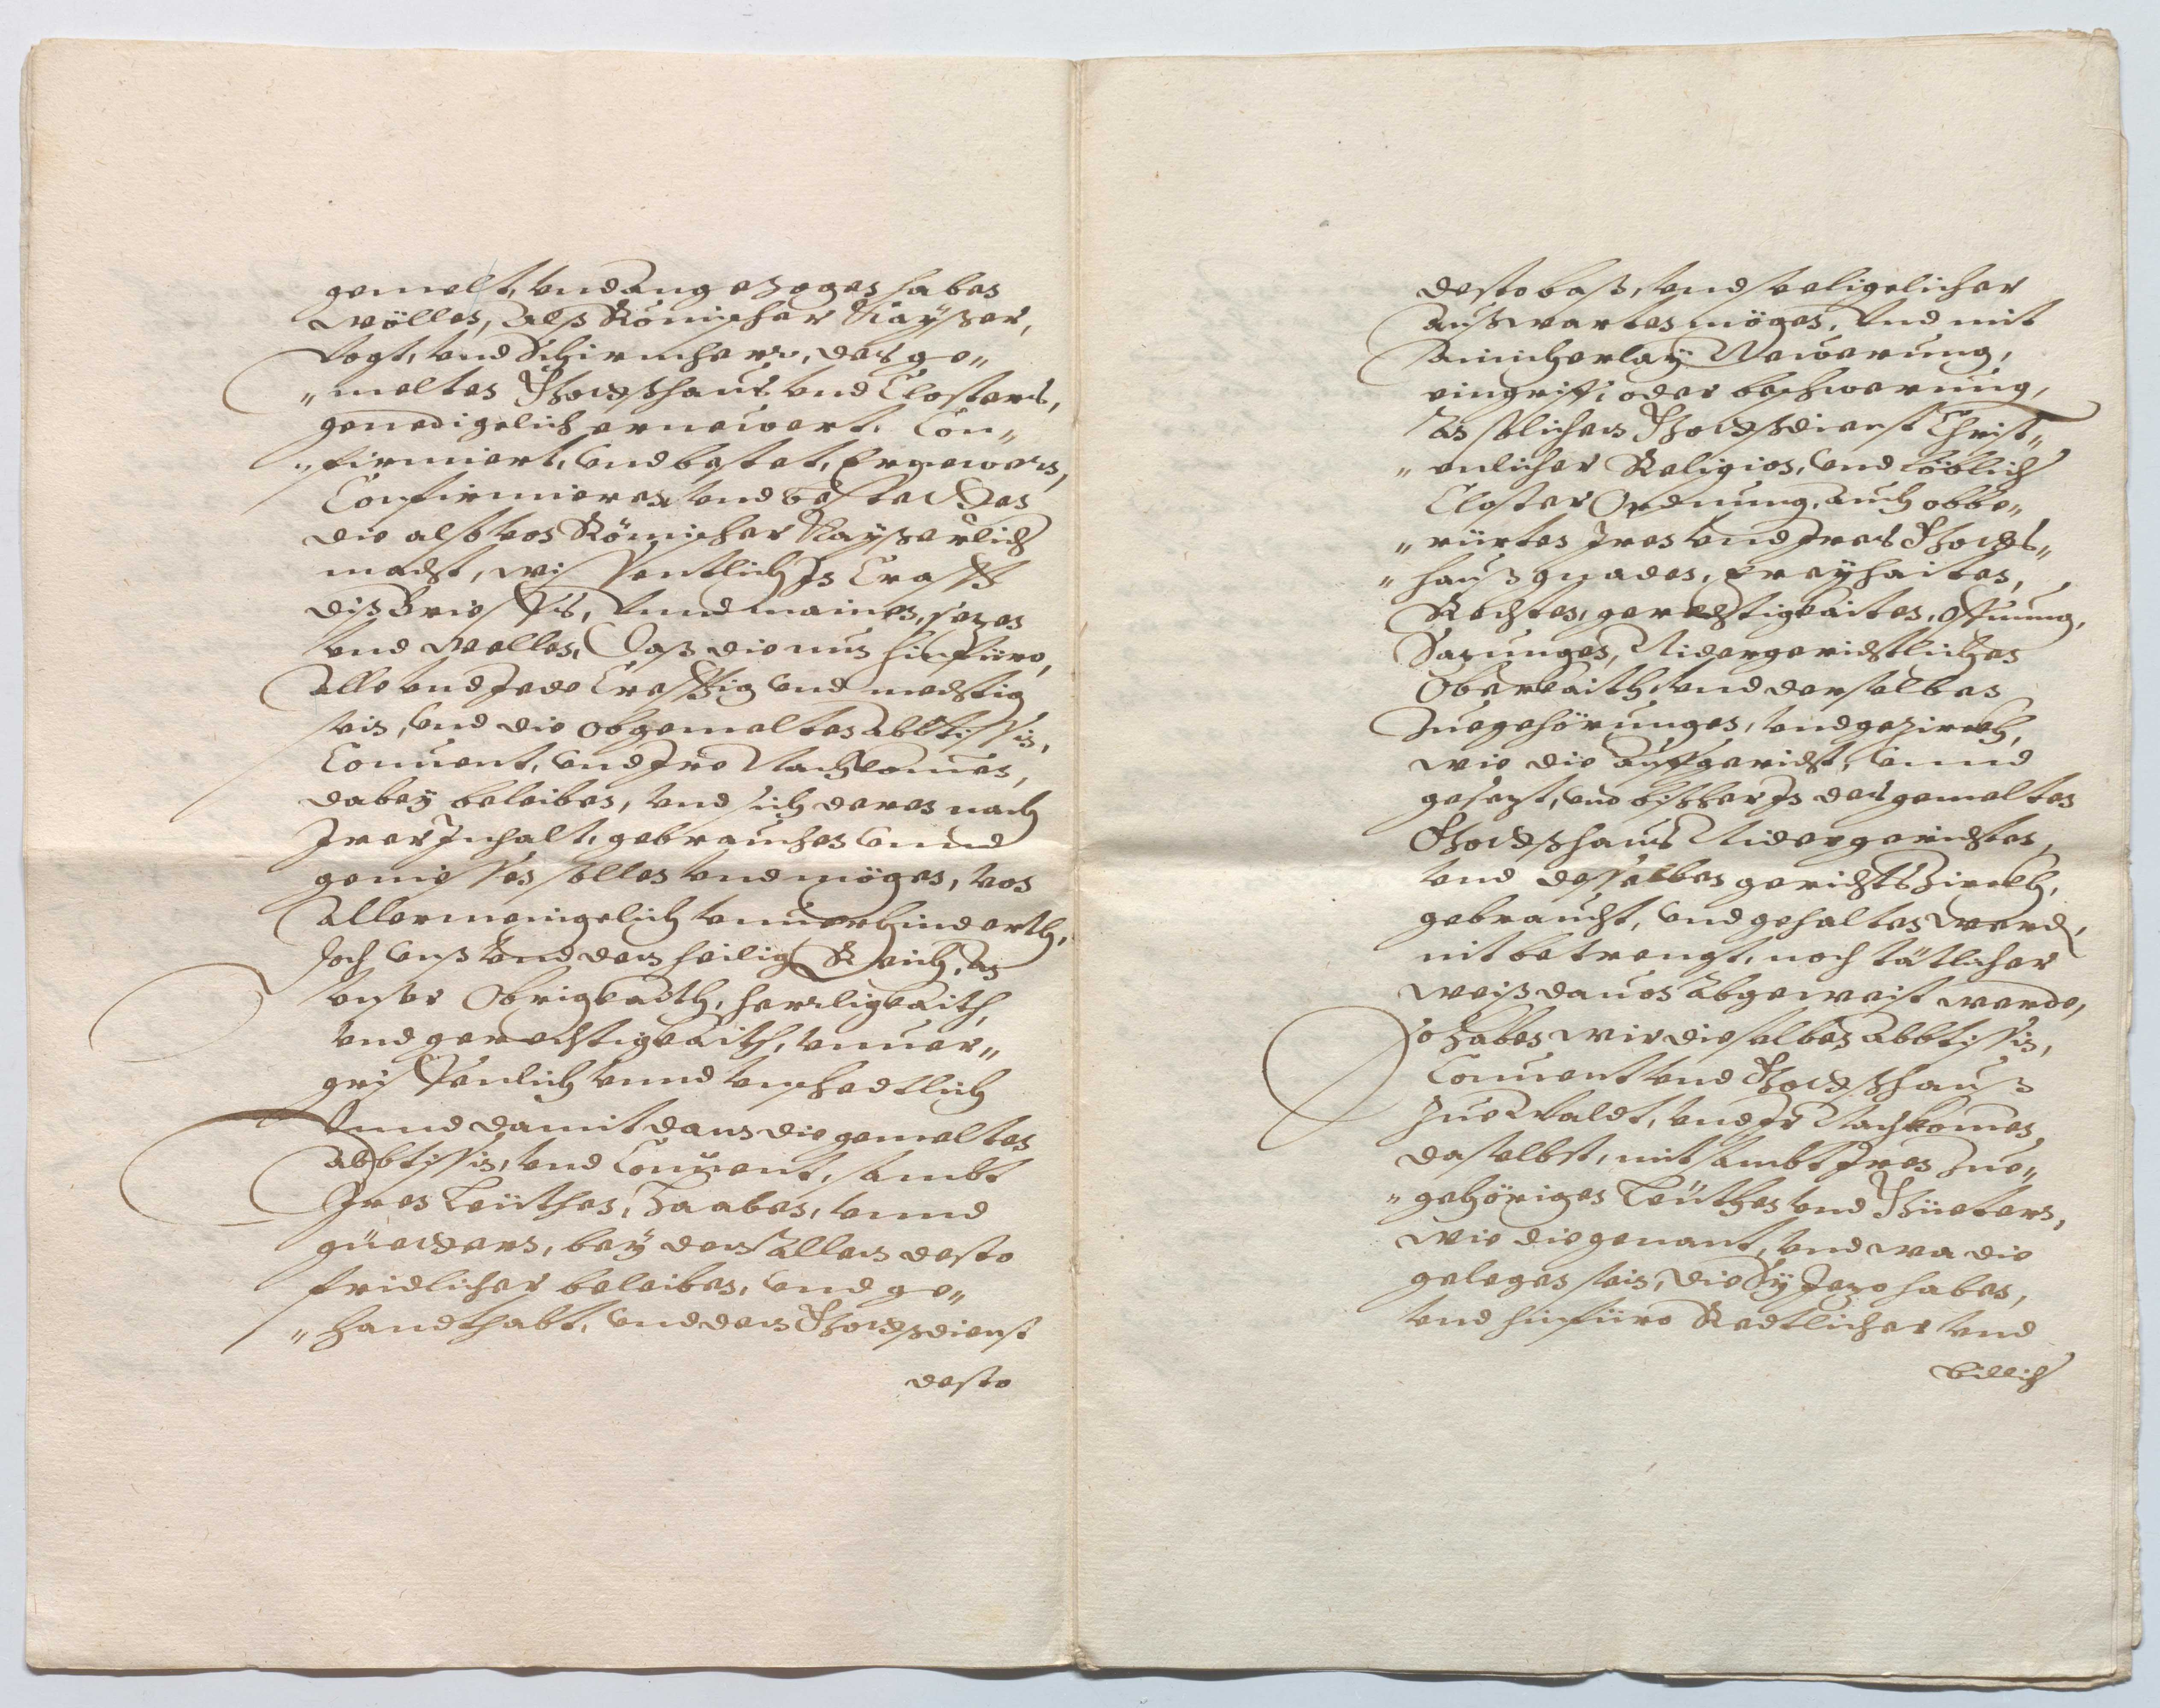 gemelt, vnd angezogen haben
wöllen, Alß Römischer Kayßer,
Vogt, vnd Schirmherr, des ge„
„melten Gottßhaus vnd Closters,
genedigelich ernewert. Con„
„firmiert, vnd bestet, Ernewern,
Confirmieren vnd bestetten
die also von Römischer Kayßerlich
macht, wissentlich In Crafft
diß brieffs, Vnnd mainen, sezen
vnd wellen, Daß die nun hinfüro,
Alle vnd Jede Crefftig vnd mechtig
sein, vnd die obgemelten Abbtissin,
Conuent, vnd Ire Nachkomen,
dabey beleiben, vnd sich deren nach
Irer Inhalt, gebrauchen vnnd
geniessen sollen vnd mögen, von
Allermenigelich vnuerhinderth,
Doch vnß vnd dem heilig Reich, An
vnser Obrigkaith, herrligkaith,
vnd gerechtigkaith, vnuer„
griffenlich vnnd vnschedtlich
Vnnd damit dann die gemelten
Abbtissin, vnd Conuent, sambt
Iren Leüthen, Haaben, vnnd
güettern, bey dem Allem desto
fridlicher beleiben, vnd ge„
„handthabt, vnd dem Gottßdienst
desto
desto baß, vnd seeligelicher
außwarten mögen, Vnd mit
ainicherlay Newerung,
eingriff, oder beschwerung,
An solichem Gottßdienst Christ„
„enlicher Religion, vnd löblich
Closter Ordnung, auch obbe„
„rürten Iren vnd Ires Gotts„
„hauß gnaden, Freyhaiten,
Rechten, gerechtigkaiten, Offnung,
Sazungen, Nidergerichtlichen
Oberkaith, vnd derselben
Zuegehörungen, vnd gezirckh,
wie die auffgericht, vnnd
gesezt, vnd bißher In des gemelten
Gottßhaus Nidergerichten,
vnd desselben gerichtszirckh,
gebraucht, vnd gehalten werd,
nit betrengt, noch tätlicher
weiß dauon Abgeweist werde,
So haben wir dieselben Abbtissin,
Conuent vnd Gottßhauß
Zue Waldt, vnd Ir Nachkomen
daselbst, mit sambt Iren Zue„
„gehörigen Leüthen vnd Güetern,
wie die genant, vnd wa die
gelegen sein, die Sy Jezo haben,
vnd hinfüro Redtlicher vnd
billich